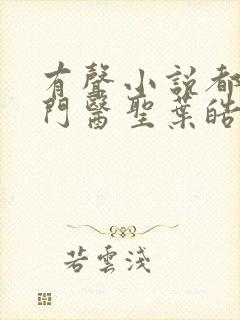 有聲小說都
門醫聖葉皓
若雲淺